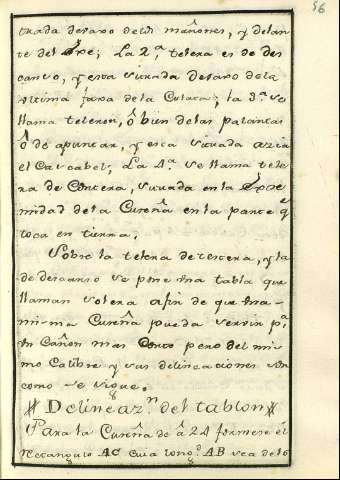 56
trada devaxo de los muñones, y delan
te del Exe; La 2.ª telera es de des
canso, y esta situada devaxo de la
ultima faxa de la Culata; la 3.ª se
llama teleron, ô bien de las palancas
Ô de apuntar, y esta situada azia
el Cascabel; La 4.ª se llama tele
ra de Contera, situada en la Extre
midad de la Cureña en la parte q̃
toca en tierra.
Sobre la telera de tercera, y la
de descanso se pone una tabla que
llaman solera afin de que una
misma Cureña pueda servir p.ª
un Cañon mas Corto pero del mis
mo Calibre y sus delineaciones son
como se sigue.
Delineaz.n del tablon
Para la Cureña de â 24 formese el
rectangulo AC cuia long.d AB sea de 10